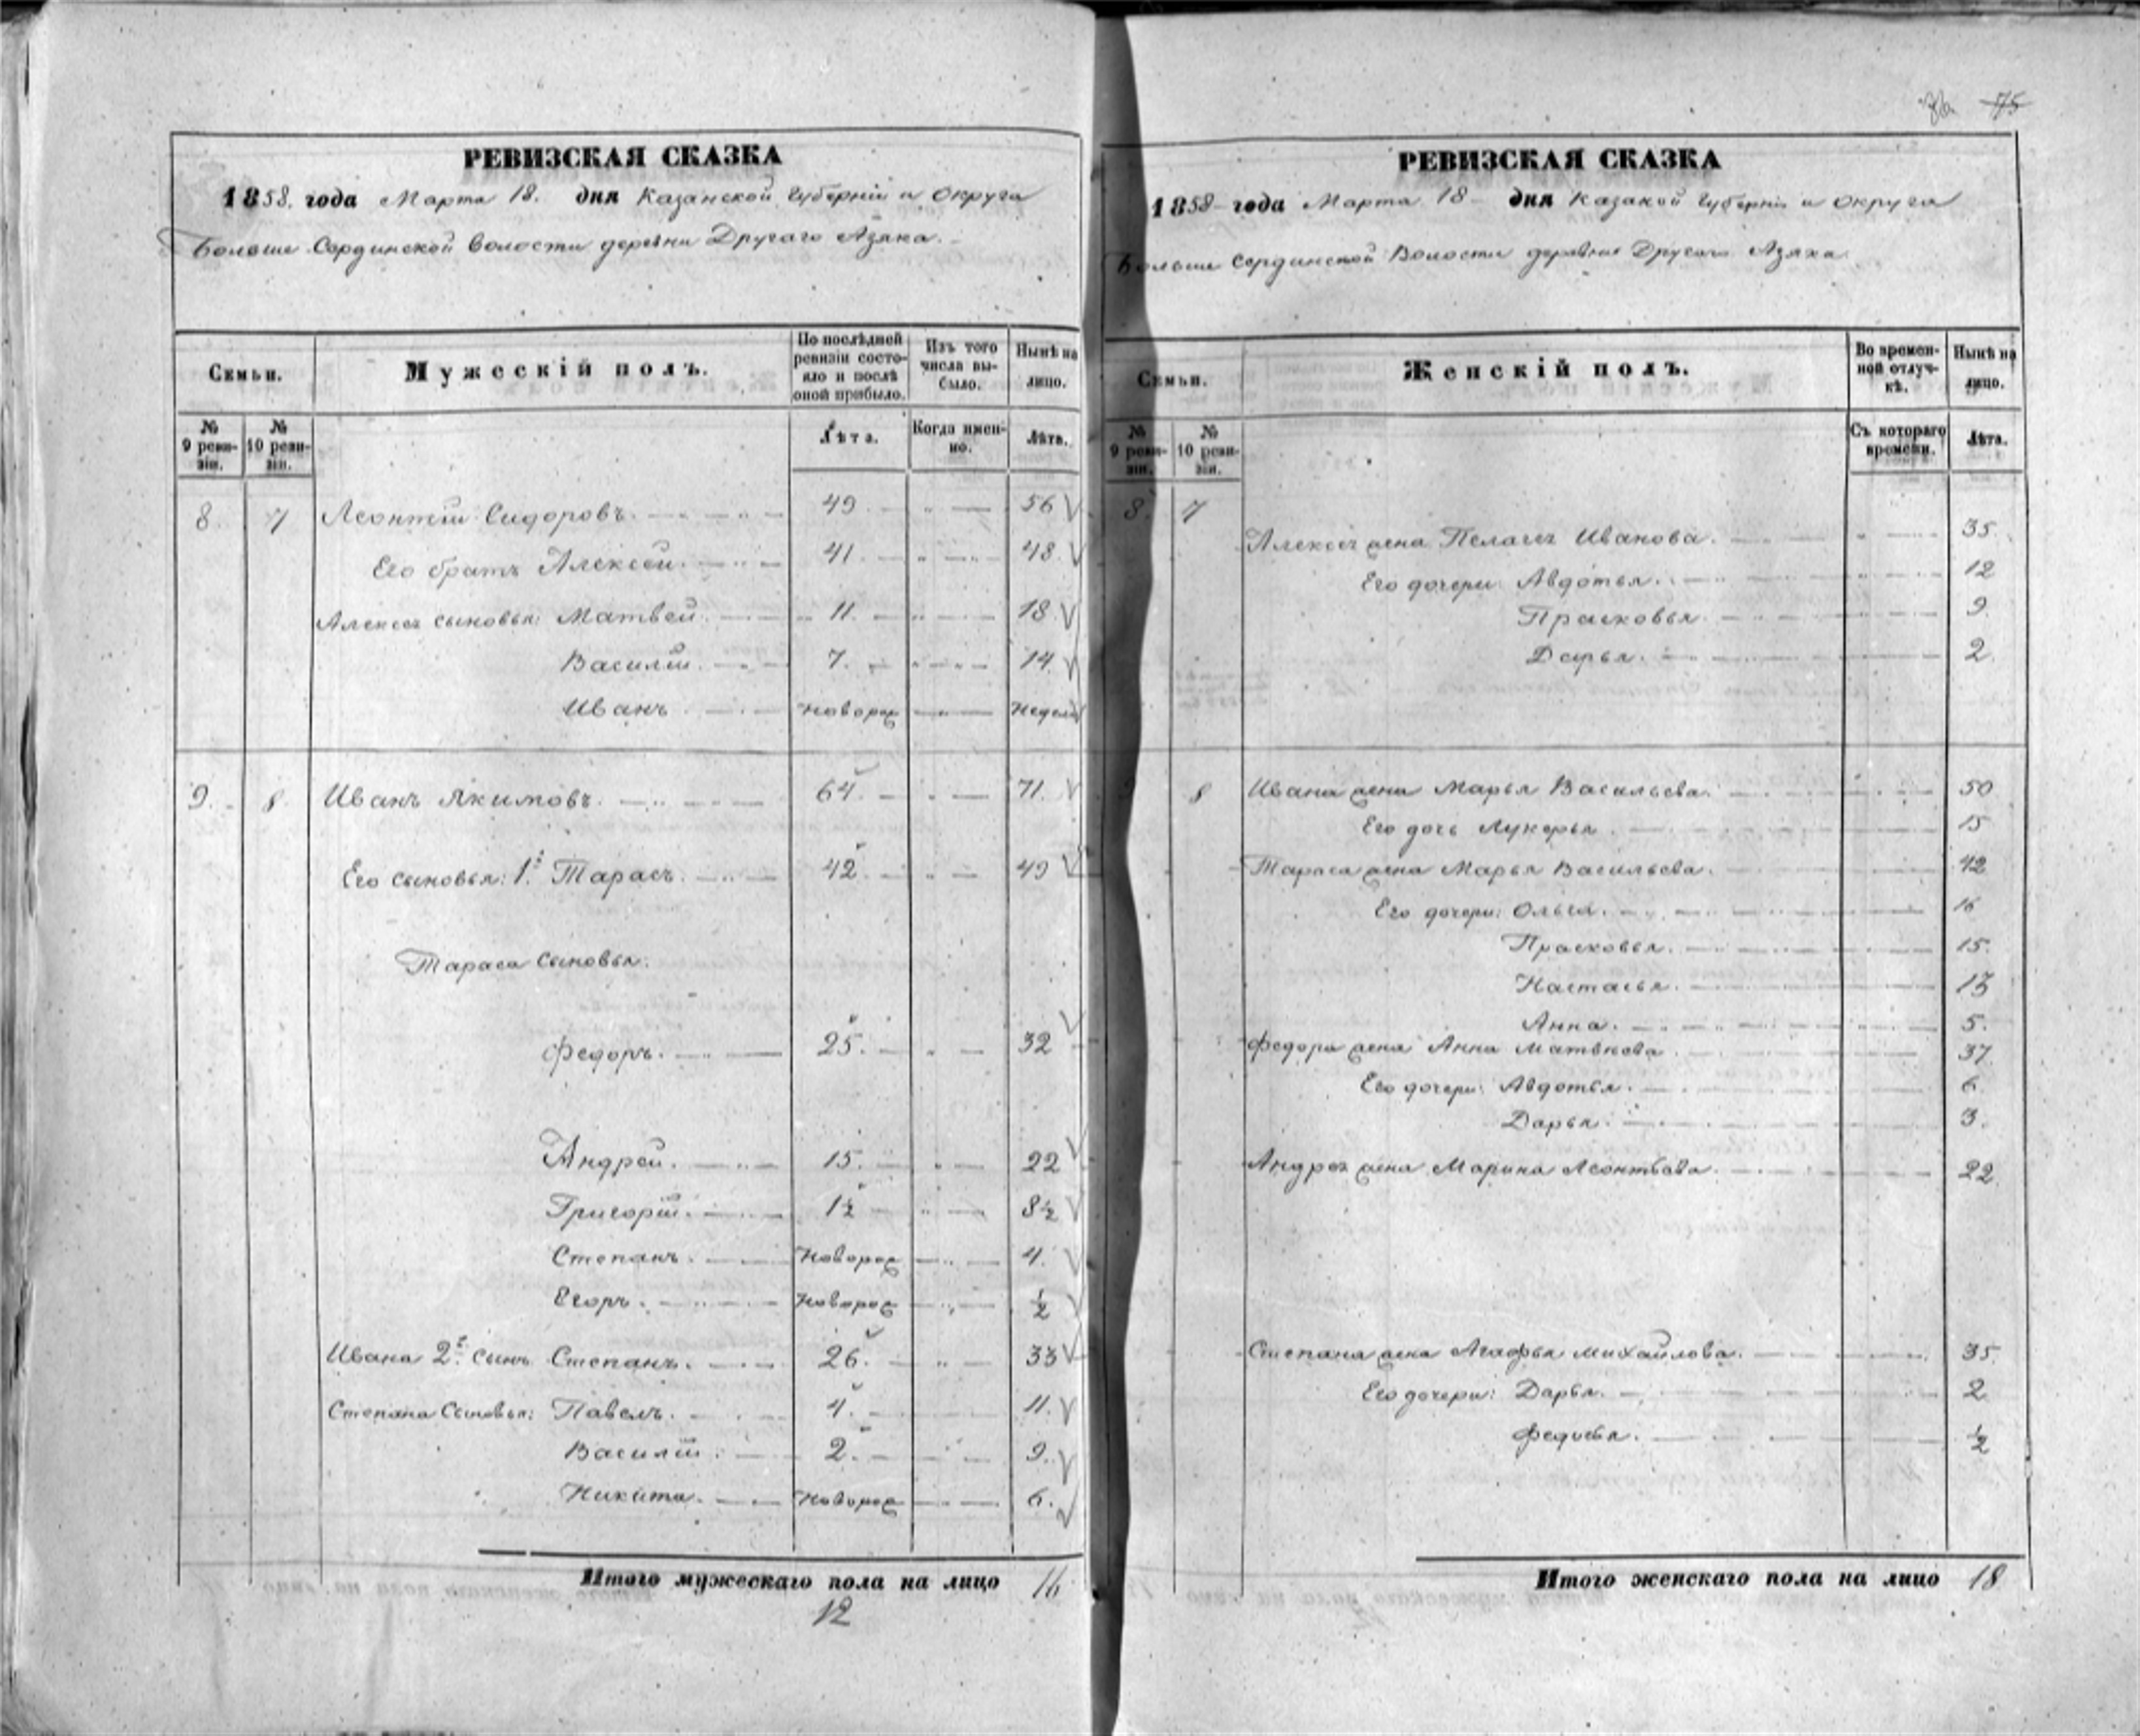 75
РЕВИЗСКАЯ СКАЗКА
1858. года Марта 18. дня Казанской Губерніи и округа
Больше Сердинской волости деревни Другаго Азяка.
Семьи.
Мужескій полъ.
По послѣдней ревизіи состояло и послѣ оной прибыло.
Изъ того числа выбыло.
Нынѣ на лицо.
№ 9 ревизіи.
№ 10 ревизіи.
Лѣта.
Когда именно.
Лѣта.
8. 7 Леонтій Сидоровъ. 49 56
Его братъ Алексей. 41 48
Алексея сыновья: Матвей 11. 18
Василій. 7. 14
Иванъ новорож неделя
9. 8 Иванъ Якимовъ. 64 71.
Его сыновья: 1й Тарасъ. 42 49
Тараса сыновья:
Федоръ. 25. 32
Андрей. 15. 22
Григорій. 1½ 8½
Степанъ. Новорож 4.
Егоръ. Новорож ½
Ивана 2й сынъ Степанъ. 26. 33
Степана сыновья: Павелъ. 4. 11.
Василій. 2. 9.
Никита. Новорож 6.
Итого мужескаго пола на лицо 16
12
РЕВИЗСКАЯ СКАЗКА
1858 года Марта 18 дня Казакой Губерніи и округа
Больше Сердинской Волости деревни Другаго Азяка
Семьи.
Женскій полъ.
Во временной отлучкѣ.
Нынѣ на лицо.
№ 9 ревизіи.
№ 10 ревизіи.
Съ котораго времени.
Лѣта.
8. 7
Алексея жена Пелагея Иванова. 35.
Его дочери: Авдотья. 12
Прасковья 9.
Дарья. 2.
8 Ивана жена Марья Васильева. 50
Его дочь Лукерья. 15
Тараса жена Марья Васильева. 42
Его дочери: Ольга. 16
Прасковья. 15.
Настасья. 13
Анна. 5.
Федора жена Анна Матвѣева 37
Его дочери: Авдотья. 6
Дарья. 3.
Андрея жена Марина Леонтьева. 22.
Степана жена Агафья Михайлова. 35.
Его дочери: Дарья. 2
Федосья. ½
Итого женскаго пола на лицо 18